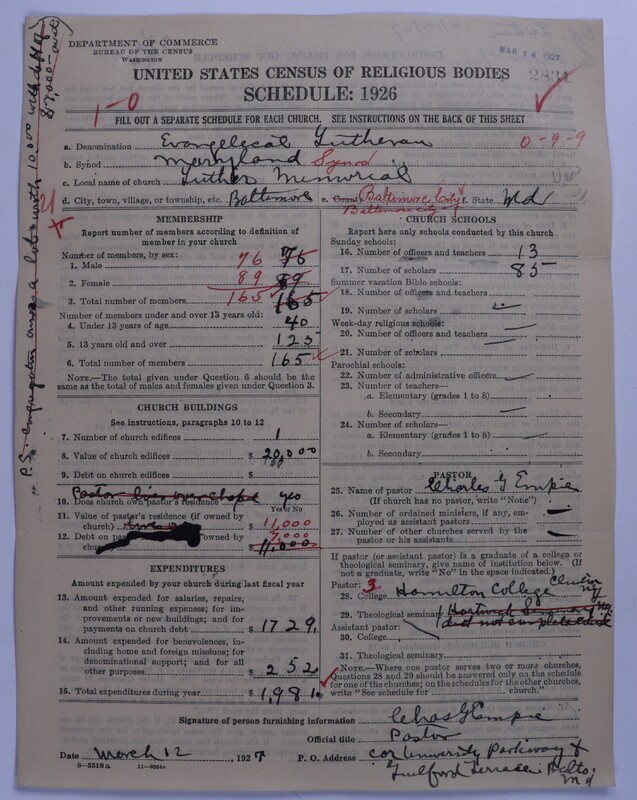 DEPARTMENT OF COMMERCE
BUREAU OF THE CENSUS
WASHINGTON
MAR 14 1927
2834
UNITED STATES CENSUS OF RELIGIOUS BODIES
SCHEDULE: 1926
1-0
FILL OUT A SEPARATE SCHEDULE FOR EACH CHURCH. SEE INSTRUCTIONS ON THE BACK OF THIS SHEET
a. Denomination Evangelical Lutheran 0-9-9
b. Synod Maryland Synod
c. Local name of church Luther Memorial
d. City, town, village, or township, etc. Baltimore e. County Baltimore City f. State Md
Baltimore city
P.S. congregation owns a lot worth 10,000 with debt of
$7,000—
MEMBERSHIP
Report number of members according to definition of
member in your church
Number of members, by sex:
1. Male 76 76
2. Female 89 89
3. Total number of members 165 165
Number of members under and over 13 years old:
4. Under 13 years of age 40
5. 13 years old and over 125
6. Total number of members 165
NOTE.—The total given under Question 6 should be
the same as the total of males and females given under Question 3.
CHURCH BUILDINGS
See instructions, paragraphs 10 to 12
7. Number of church edifices 1
8. Value of church edifices $ 20,000
9. Debt on church edifices $
Pastor lives over chapel
10. Does church own pastor's residence yes
Yes or No
11. Value of pastor's residence (if owned by
church) $ 11,000
12. Debt on pastor's residence (if owned by
church) $ 7,000
11,000
EXPENDITURES
Amount expended by your church during last fiscal year
13. Amount expended for salaries, repairs,
and other running expenses; for im-
provements or new buildings; and for
payments on church debt $ 1729.
14. Amount expended for benevolences, in-
cluding home and foreign missions; for
denominational support; and for all
other purposes $ 252
15. Total expenditures during year $ 1,981.
CHURCH SCHOOLS
Report here only schools conducted by this church
Sunday schools:
16. Number of officers and teachers 13
17. Number of scholars 85
Summer vacation Bible schools:
18. Number of officers and teachers
19. Number of scholars
Week-day religious schools:
20. Number of officers and teachers
21. Number of scholars
Parochial schools:
22. Number of administrative officers
23. Number of teachers—
a. Elementary (grades 1 to 8)
b. Secondary
24. Number of scholars—
a. Elementary (grades 1 to 8)
b. Secondary
PASTOR
25. Name of pastor Charles G Empie
(If church has no pastor, write "None")
26. Number of ordained ministers, if any, em-
ployed as assistant pastors —
27. Number of other churches served by the
pastor or his assistants —
If pastor (or assistant pastor) is a graduate of a college or
theological seminary, give name of institution below. (If
not a graduate, write "No" in the space indicated.)
Pastor: 3
28. College Hamilton College Clinton NY
29. Theological seminary Hartwick Seminary NY.
did not complete
Assistant pastor:
30. College
31. Theological seminary
NOTE.—Where one pastor serves two or more churches,
Questions 28 and 29 should be answered only on the schedule
for one of the churches; on the schedules for the other churches,
write "See schedule for church."
Signature of person furnishing information Chas G Empie
Official title Pastor
Date March 12, 1927 P. O. Address cor University Parkway &
Guilford Terrace Balto. Md
8-5518a 11-9054